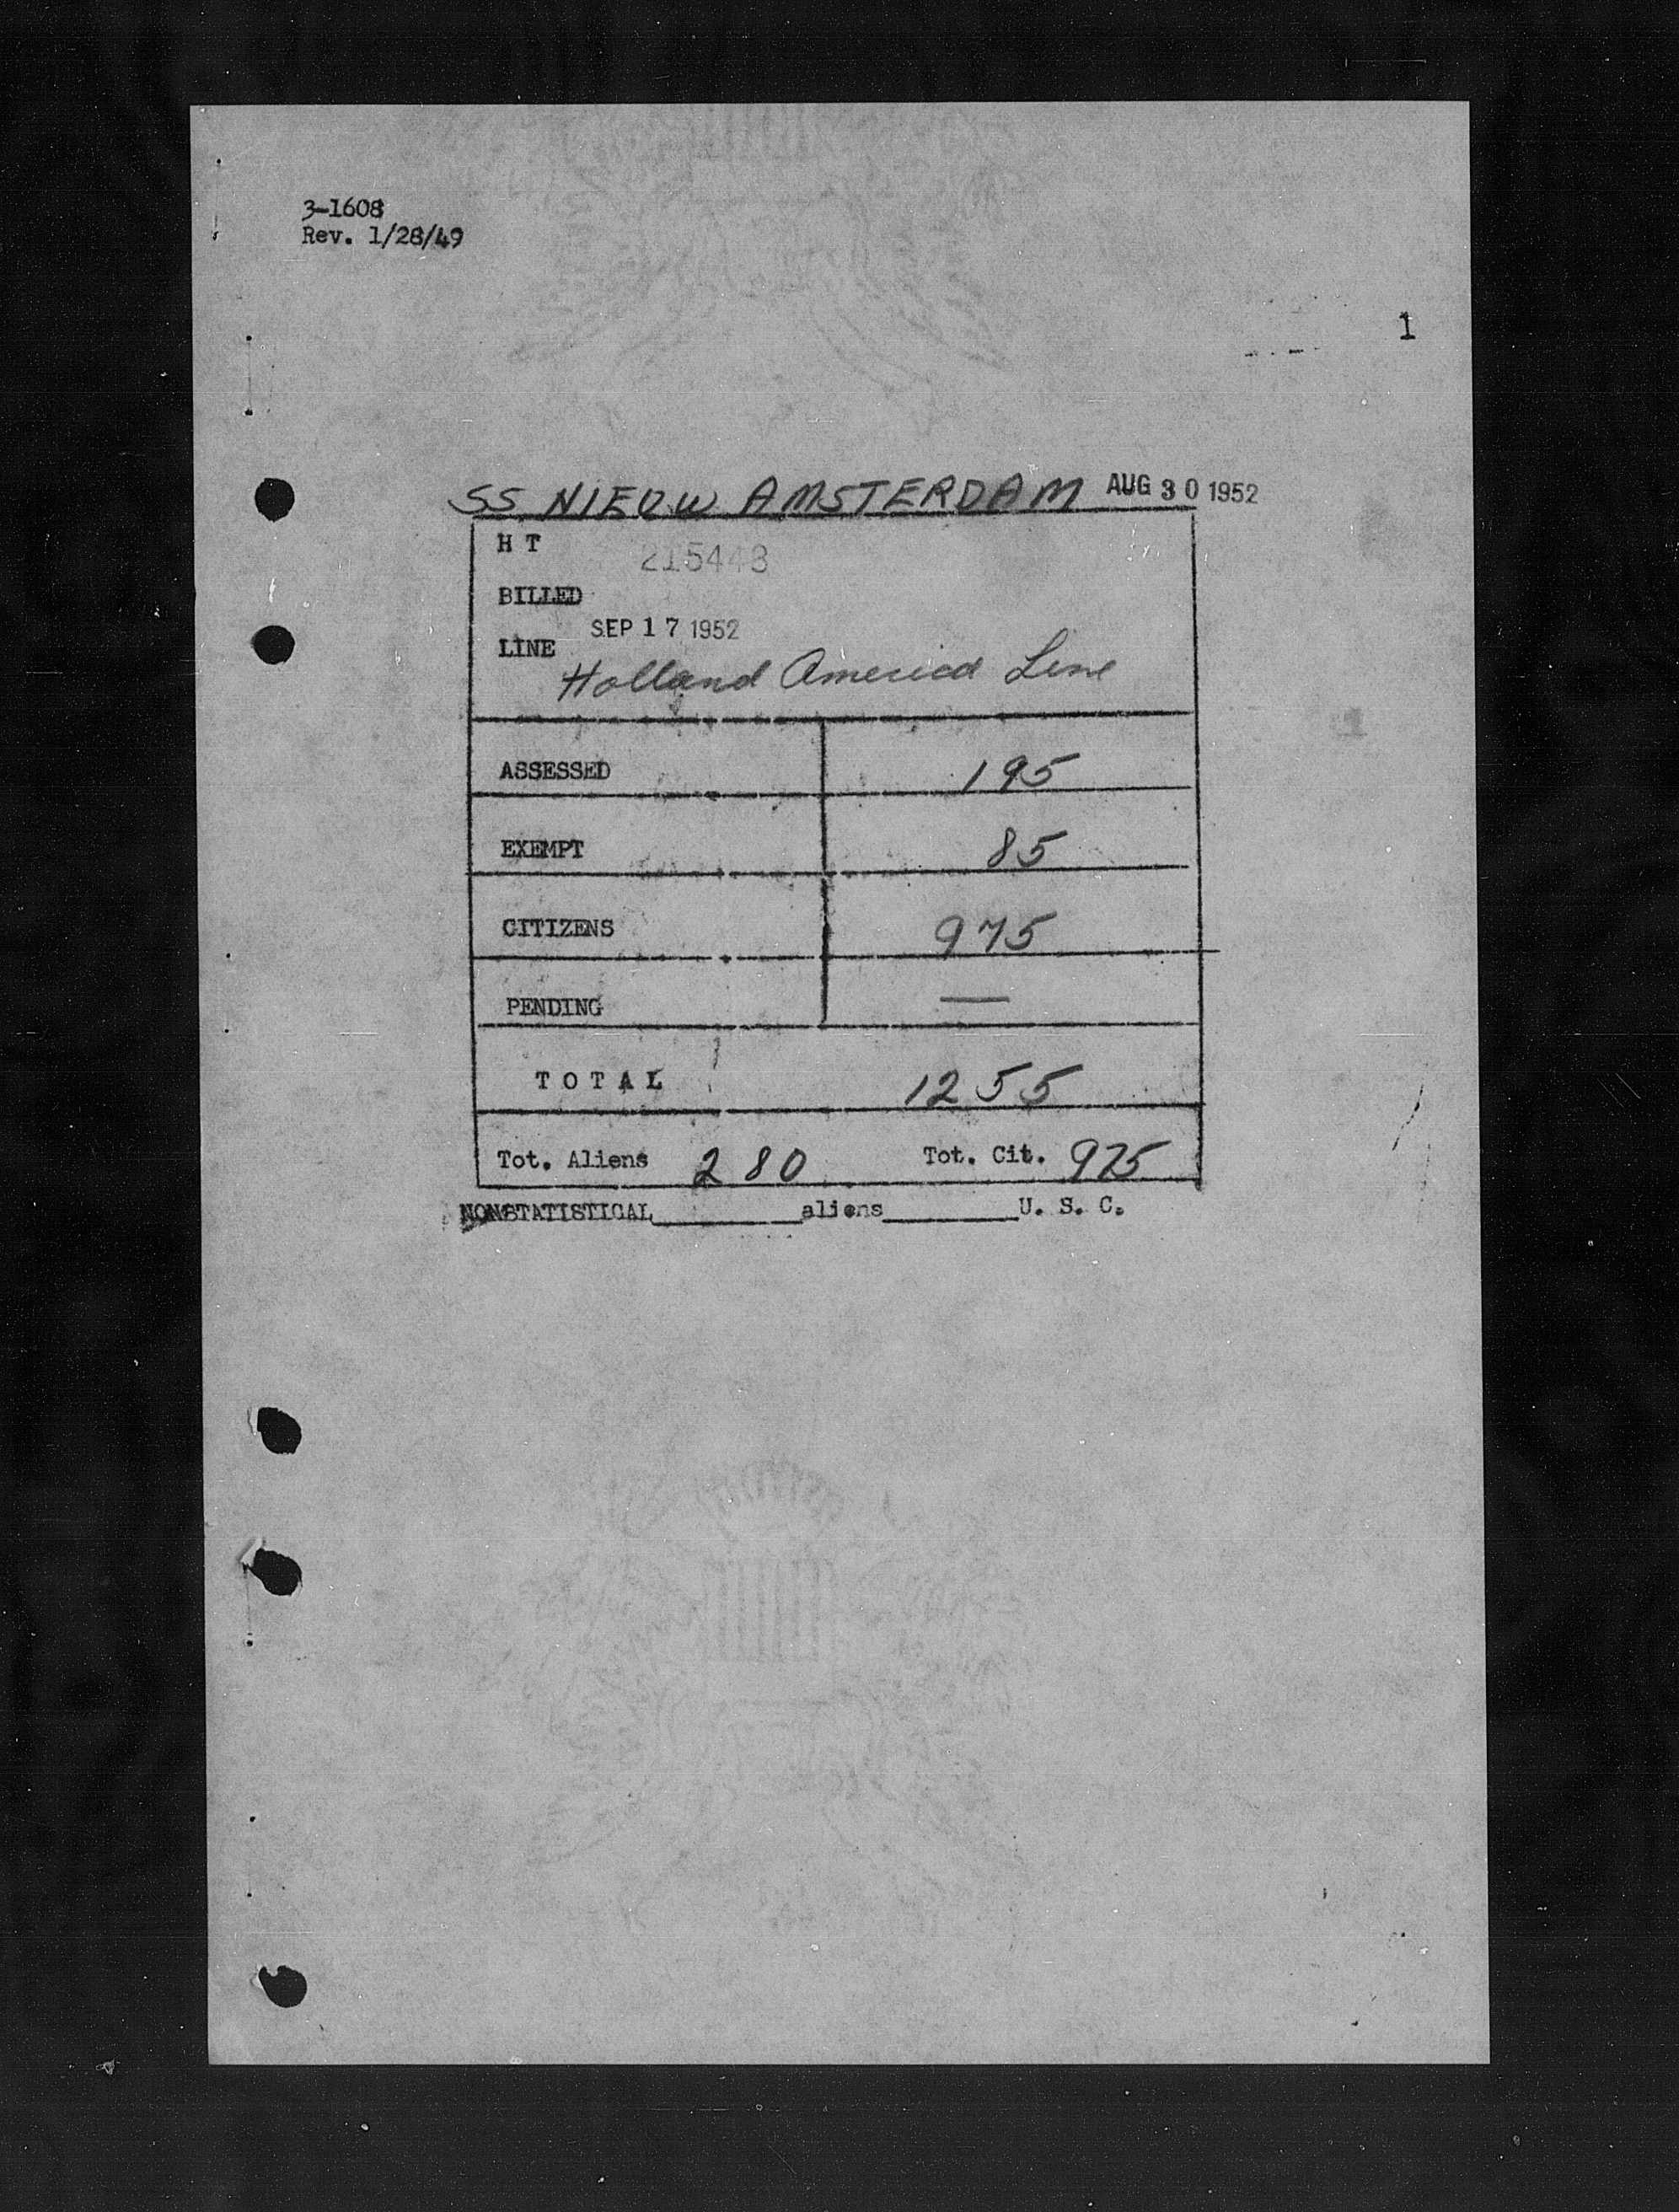 3-1608
Rev. 1/28/49
1
SS NIEUW AMSTERDAM AUG 30 1952
H T 215448
BILLED
SEP 17 1952
LINE
Holland America Line
ASSESSED 195
EXEMPT 85
CITIZENS 975
PENDING —
TOTAL 1255
Tot. Aliens 280 Tot. Cit. 975
NONSTATISTICAL________aliens________U. S. C.